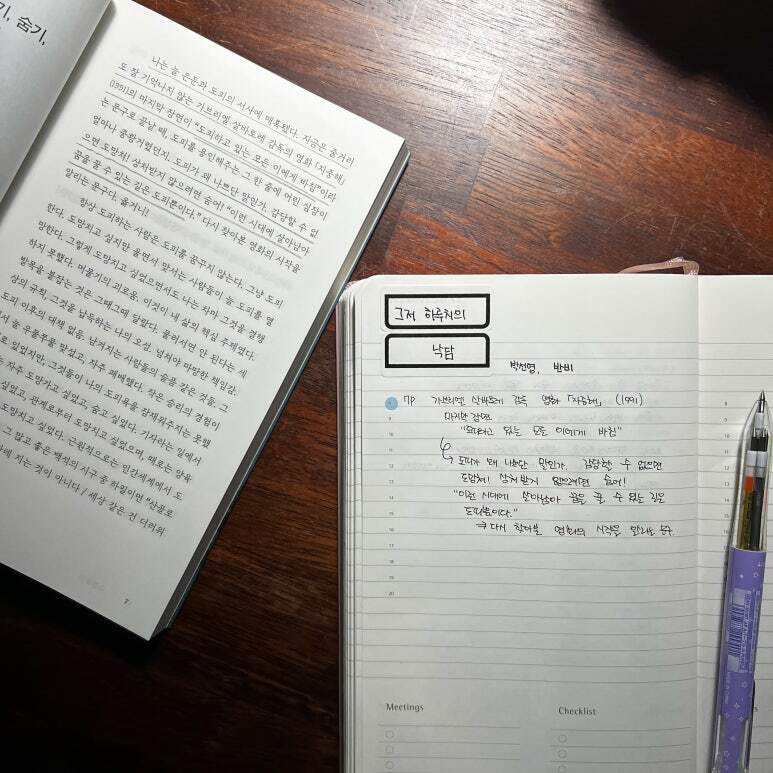 기, 숨기,
나는 늘 은둔과 도피의 서사에 매혹됐다. 지금은 줄거리
도 잘 기억나지 않는 가브리엘 살바토레 감독의 영화 「지중해」
(1991)의 마지막 장면이 “도피하고 있는 모든 이에게 바침”이라
는 문구로 끝날 때, 도피를 용인해주는 그 한 줄에 어린 심장이
얼마나 쿵쾅거렸던지. 도피가 왜 나쁘단 말인가. 감당할 수 없
으면 도망쳐! 상처받지 않으려면 숨어! “이런 시대에 살아남아
꿈을 꿀 수 있는 길은 도피뿐이다.” 다시 찾아본 영화의 시작을
알리는 문구다. 옳거니!
항상 도피하는 사람은 도피를 꿈꾸지 않는다. 그냥 도피
한다. 도망치고 싶지만 울면서 맞서는 사람들이 늘 도피를 열
망한다. 그렇게 도망치고 싶었으면서도 나는 차마 그것을 결행
하지 못했다. 머물기의 괴로움, 이것이 내 삶의 핵심 주제였다.
발목을 붙잡는 것은 그때그때 달랐다. 물러서면 안 된다는 세
상의 규칙, 그것을 납득하는 나의 오성, 넘쳐야 마땅한 책임감,
도피 이후의 대책 없음, 남겨지는 사람들의 슬픔 같은 것들. 그
서 늘 우물쭈물 맞섰고, 자주 패배했다. 작은 승리의 경험이
로 있었지만, 그것들이 나의 도피욕을 잠재워주지는 못했
는 자주 도망가고 싶었고, 숨고 싶었다. 기자라는 일에서
싶었고, 관계로부터 도망치고 싶었으며, 때로는 양육
도망치고 싶었다. 근원적으로는 인간세계에서 도
그 많고 좋은 백석의 시구 중 하필이면 “산골로
한테 지는 것이 아니다 / 세상 같은 건 더러워
7
그저 하루치의
낙담
박선영, 반비
8 7p 가브리엘 살바토레 감독 영화 「지중해」 (1991)
9 마지막 장면
10 “도피하고 있는 모든 이에게 바침”
12 → 도피가 왜 나쁘단 말인가. 감당할 수 없으면
13 도망쳐! 상처받지 않으려면 숨어!
14 “이런 시대에 살아남아 꿈을 꿀 수 있는 길은
15 도피뿐이다.”
16 ⇒ 다시 찾아본 영화의 시작을 알리는 문구
17
18
19
20
Meetings
Checklist